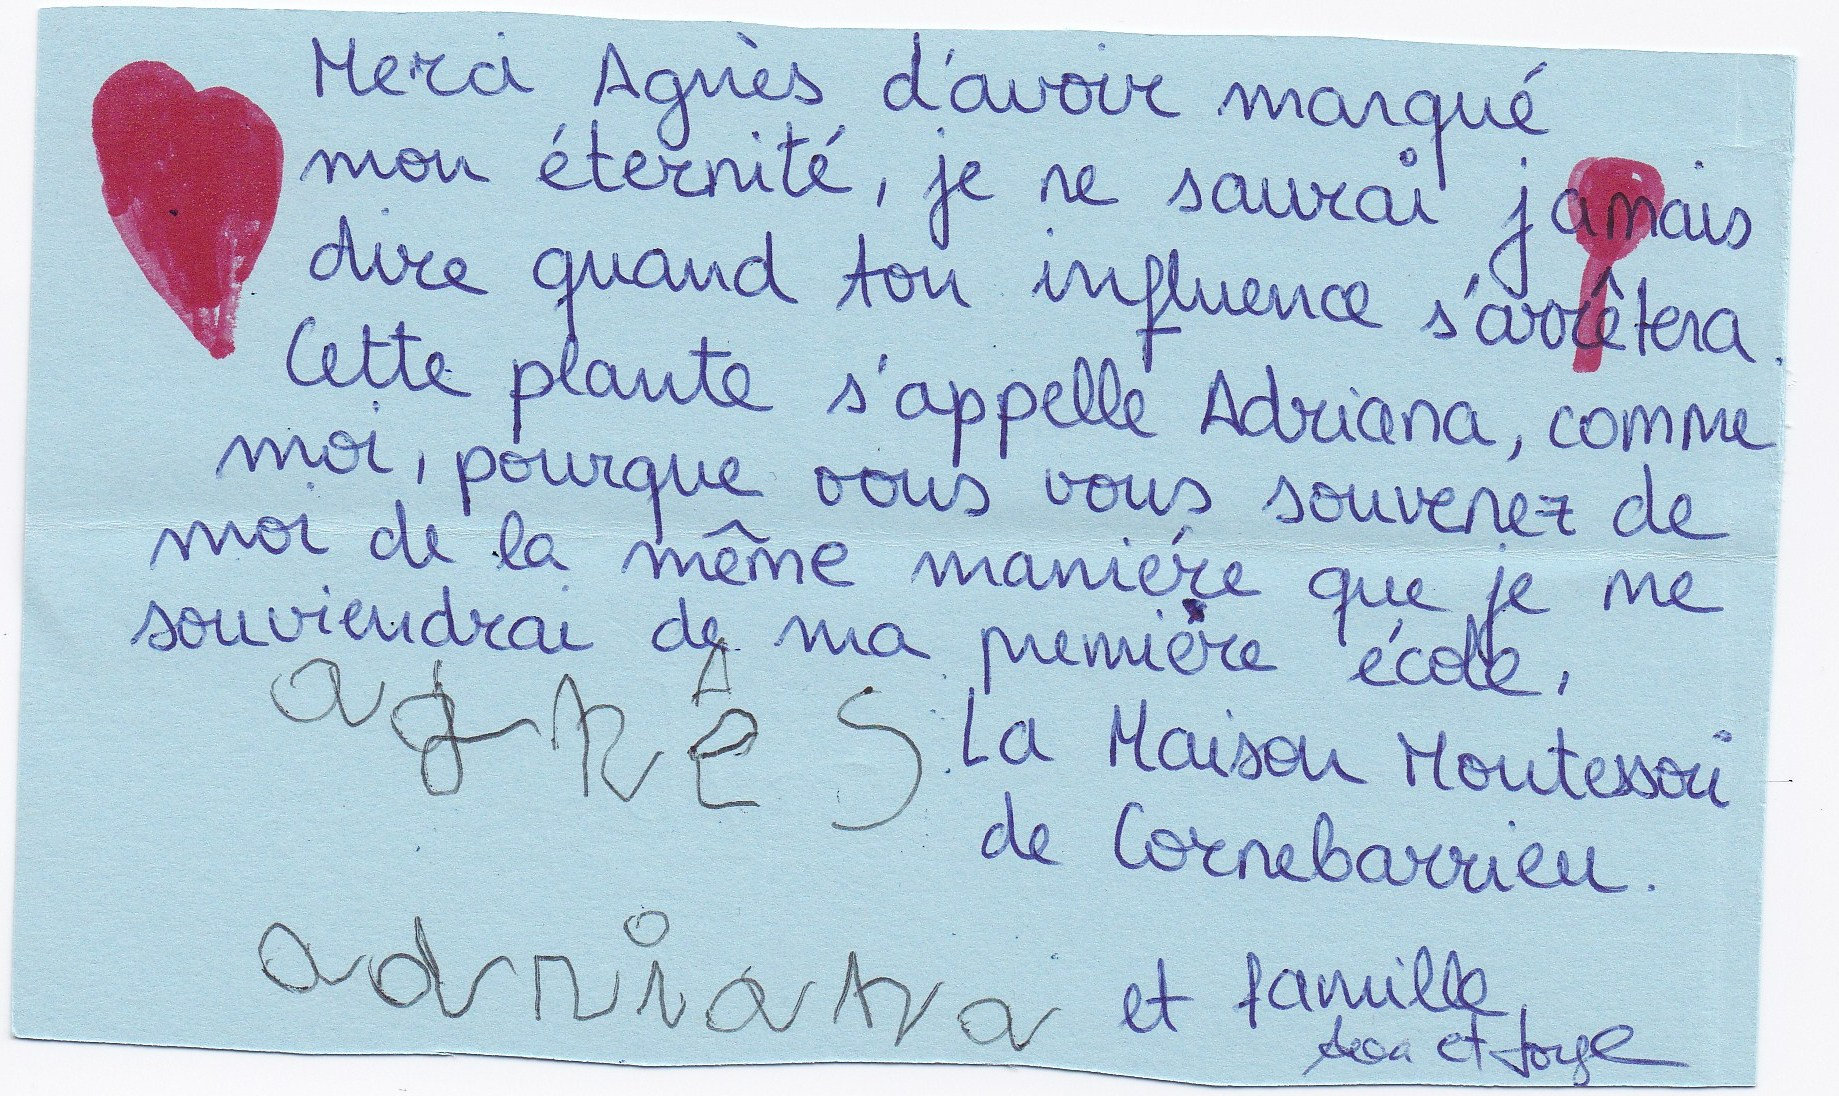 Merci Agnès d'avoir marqué
mon éternité, je ne saurai jamais
dire quand ton influence s'arrêtera.
Cette plante s'appelle Adriana, comme
moi, pourque vous vous souvenez de
moi de la même maniére que je me
souviendrai de ma première école,
agnês
La Maison Montessori
de Cornebarrieu.
adriana et famille
et Jorge